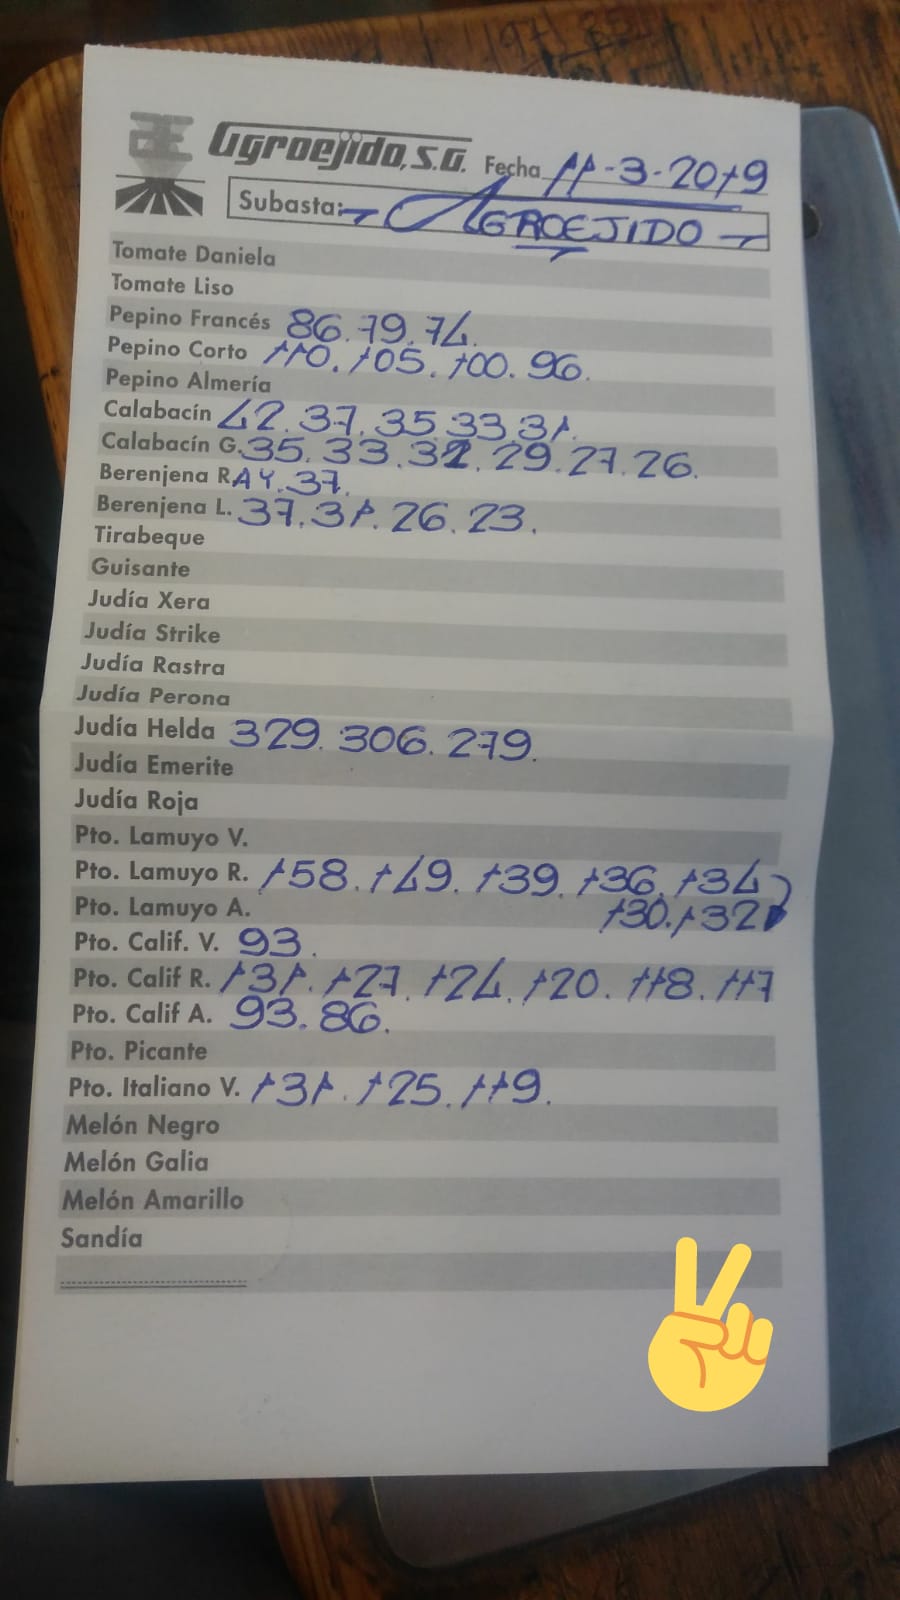 Agroejido, S.G. Fecha 11-3-2019
Subasta: - AGROEJIDO -
Tomate Daniela
Tomate Liso
Pepino Francés 86.79.74.
Pepino Corto 110.105.100.96.
Pepino Almería
Calabacín 42.37.35.33.31.
Calabacín G. 35.33.32.29.27.26.
Berenjena RAY.37.
Berenjena L. 37.31.26.23.
Tirabeque
Guisante
Judía Xera
Judía Strike
Judía Rastra
Judía Perona
Judía Helda 329.306.279.
Judía Emerite
Judía Roja
Pto. Lamuyo V.
Pto. Lamuyo R. 158.149.139.136.134
Pto. Lamuyo A. 130.132
Pto. Calif. V. 93.
Pto. Calif R. 131.127.124.120.118.117
Pto. Calif A. 93.86.
Pto. Picante
Pto. Italiano V. 131.125.119.
Melón Negro
Melón Galia
Melón Amarillo
Sandía